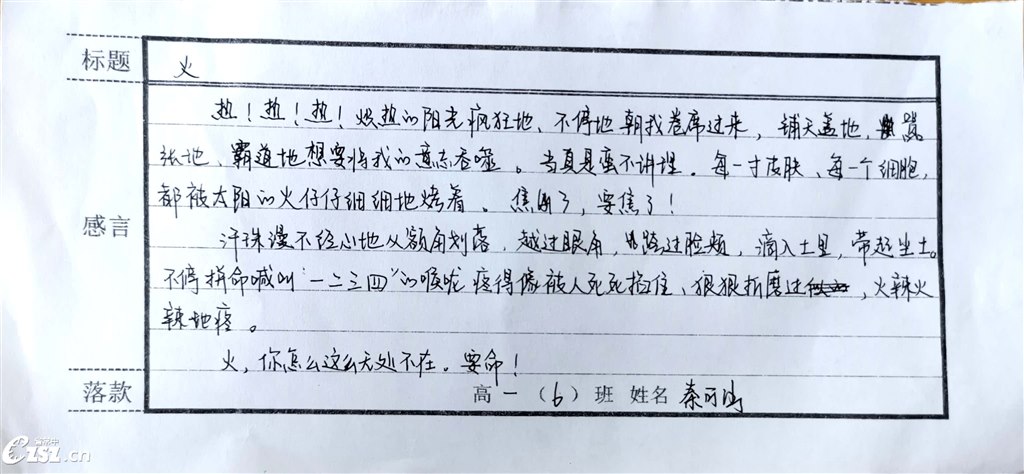 标题
火
热！热！热！炽热的阳光疯狂地、不停地朝我卷席过来，铺天盖地，嚣
张地、霸道地想要将我的意志吞噬。当真是蛮不讲理。每一寸皮肤、每一个细胞，
都被太阳的火仔仔细细地烤着。焦了，要焦了！
感言
汗珠漫不经心地从额角划落，越过眼角，跨过脸颊，滴入土里，带起尘土。
不停拼命喊叫“一二三四”的喉咙疼得像被人死死掐住、狠狠折磨过，火辣火
辣地疼。
火，你怎么这么无处不在。要命！
落款
高一（6）班 姓名 秦可
e151.cn